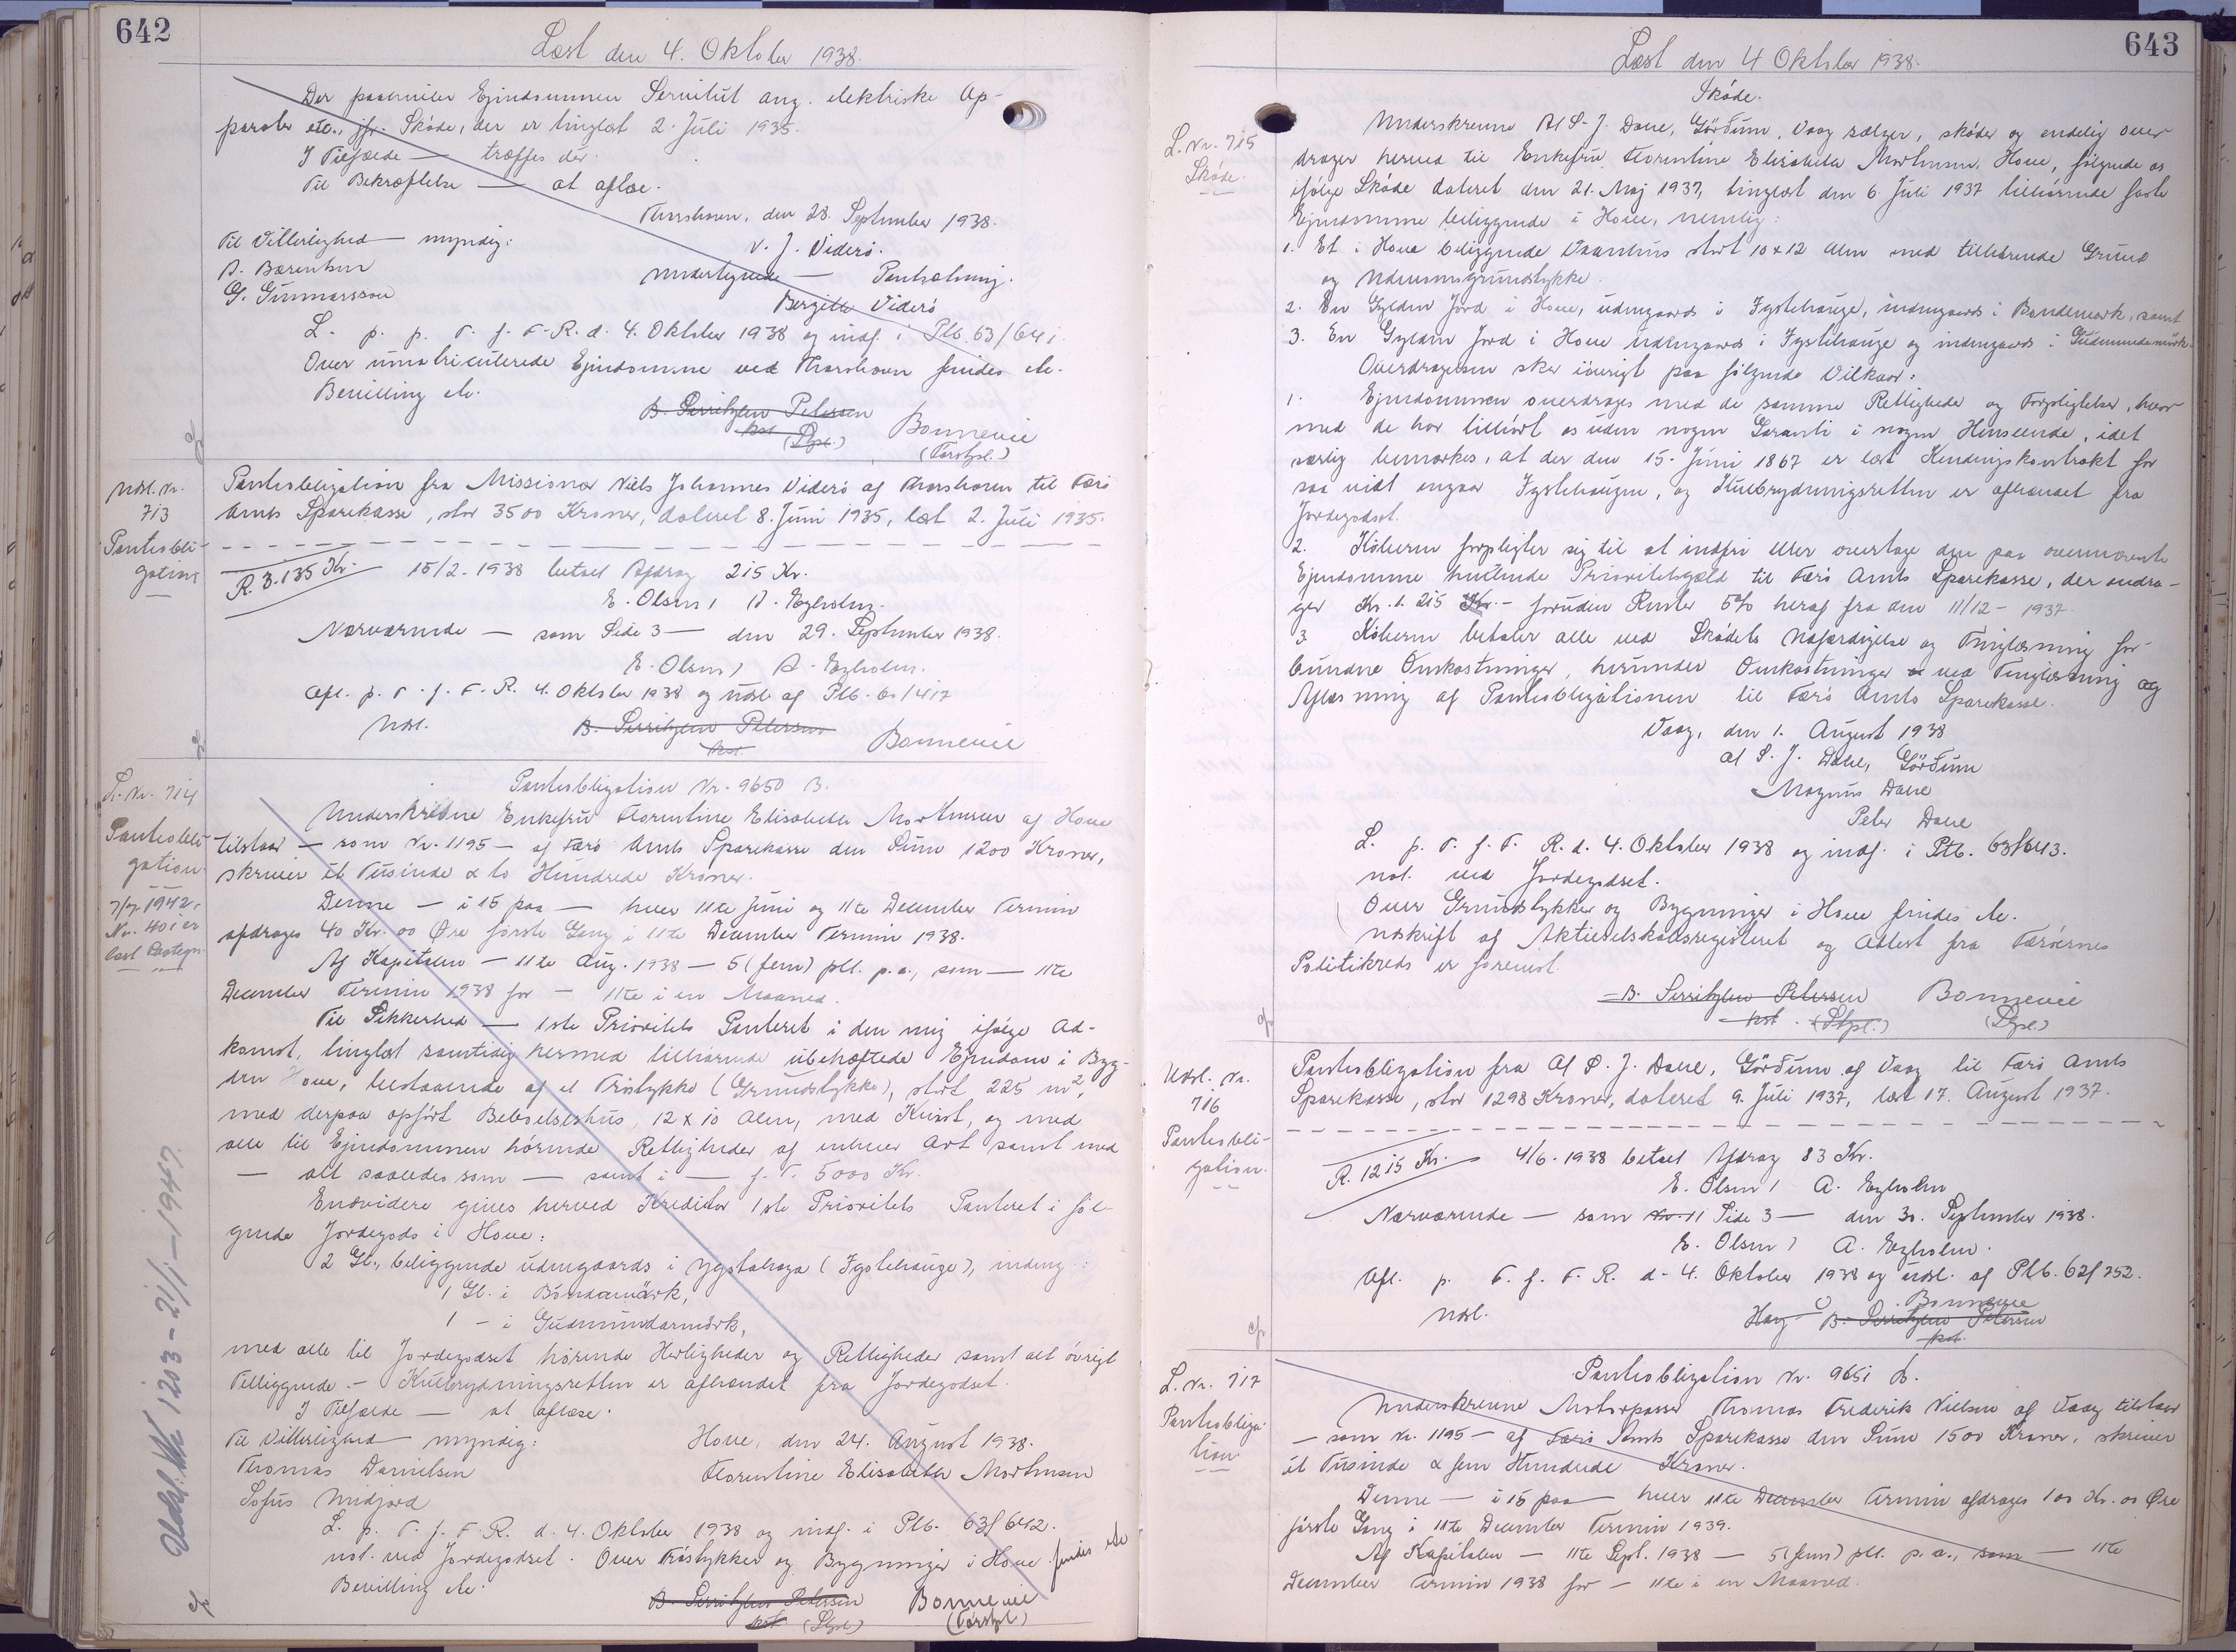 642
Læst den 4. Oktober 1938.
Der paahviler Ejendommen Servitut ang. elektriske Ap-
parater etc., jfr. Skøde, der er tinglæst 2. Juli 1935.
I Tilfælde — træffes der.
Til Bekræftelse — at aflæse.
Thorshavn, den 28. September 1938.
Til Vitterlighed — myndig: N. J. Viderø.
undertegnede — Pantsætning.
G. Gunnarsson
Bergitte Viderø
L. p. p. T. f. F. R. d. 4. Oktober 1938 og indf. i Ptb. 63/641.
Over umatriculerede Ejendomme ved Thorshavn findes etc.
Bevilling etc.
B. Serritzlew Petersen
kst (Stpl.)
Bonnevie
(Førstpl.)
Udsl. Nr.
713
Pantobli-
gation
Pantobligation fra Missionær Niels Johannes Viderø af Thorshavn til Færø
Amts Sparekasse, stor 3500 Kroner, dateret 8. Juni 1935, læst 2. Juli 1935.
R. 3.135 Kr. 15/2-1938 betalt Afdrag 215 Kr.
E. Olsen / A. Egholm.
Nærværende — som Side 3 — den 29. September 1938.
E. Olsen / A. Egholm.
Afl. p. T. f. F. R. 4. Oktober 1938 og udsl. af Ptb. 60/417
Udsl.
B. Serritzlew Petersen
kst.
Bonnevie
L. Nr. 714
Pantobli-
gation
7/7 1942.
Nr. 401 er
læst Paategn.
Pantobligation Nr. 9650 B.
Underskrevne Enkefru Florentine Elisabeth Mortensen af Hove
tilstaar — som Nr. 1195 — af Færø Amts Sparekasse den Sum 1200 Kroner,
skriver et Tusinde & to Hundrede Kroner.
Denne — i 15 paa — hver 11te Juni og 11te December Termin
afdrages 40 Kr. 00 Øre første Gang i 11te December Termin 1938.
Af Kapitalen — 11te Aug. 1938 — 5 (fem) pCt. p. a., som — 11te
December Termin 1938 for — 11te i en Maaned.
Til Sikkerhed — 1ste Prioritets Panteret i den mig ifølge Ad-
komst, tinglæst samtidig hermed tilhørende ubehæftede Ejendom i Byg-
den Hove, bestaaende af et Tröstykke (Grundstykke), stórt 225 m²,
med derpaa opført Beboelseshus, 12 x 10 Alen, med Kvist, og med
alle til Ejendommen hørende Rettigheder af enhver Art samt med
— alt saaledes som — samt i — f. T. 5000 Kr.
Endvidere gives herved Kreditor 1ste Prioritets Panteret i føl-
gende Jordegods i Hove:
2 Gl., beliggende udengaards i Ygstahaga (Ygstehauge), indeng.:
1 Gl. i Bóndamørk,
1 - i Gudmundarmørk,
med alle til Jordegodset hørende Herligheder og Rettigheder samt alt øvrigt
Tilliggende. - Kulbrydningsretten er afhændet fra Jordegodset.
I Tilfælde — at aflæse.
Til Vitterlighed — myndig: Hove, den 24. August 1938.
Thomas Danielsen Florentine Elisabeth Mortensen
Sofus Midjord
L. p. T. f. F. R. d. 4. Oktober 1938 og indf. i Ptb. 63/642.
not. ved Jordegodset. Over Tröstykker og Bygninger i Hove findes etc
Bevilling etc.
B. Serritzlew Petersen
kst (Stpl.)
Bonnevie
(Førstpl.)
Udsl. Nr. 1203 - 21/1-1947.
643
Læst den 4 Oktober 1938.
L. Nr. 715
Skøde.
Skøde.
Underskrevne Al S. J. Dane, Görðum, Vaag sælger, skøder og endelig over-
drager herved til Enkefru Florentine Elisabeth Mortensen, Hove, følgende os
ifølge Skøde dateret den 21. Maj 1937, tinglæst den 6. Juli 1937 tilhørende faste
Ejendomme beliggende i Hove, nemlig:
1. Et i Hove beliggende Vaanhus stort 10 x 12 Alen med tilhørende Grund
og Udenomsgrundstykke.
2. En Gylden Jord i Hove, udengaards i Ygstehauge, indengaards i Bondemørk, samt
3. En Gylden Jord i Hove udengaards i Ygstehauge og indengaards i Gudmundsmørk.
Overdragelsen sker iøvrigt paa følgende Vilkaar:
1. Ejendommen overdrages med de samme Rettigheder og Forpligtelser, hvor-
med de har tilhørt os uden nogen Garanti i nogen Henseende, idet
særlig bemærkes, at der den 15. Juni 1867 er læst Kendingskontrakt for
saa vidt angaar Ygstehaugen, og Kulbrydningsretten er afhændet fra
Jordegodset.
2. Køberen forpligter sig til at indfri eller overtage den paa ovennævnte
Ejendomme hvilende Prioritetsgæld til Færø Amts Sparekasse, der andra-
ger Kr. 1.215 Kr. - foruden Renter 5% heraf fra den 11/12 - 1937.
3. Køberen betaler alle ved Skødets Udfærdigelse og Tinglæsning for-
bundne Omkostninger, herunder Omkostninger ved Tinglæsning og
Aflæsning af Pantobligationen til Færø Amts Sparekasse.
Vaag, den 1. August 1938
Al S. J. Dane, Görðum
Magnus Dane
Peter Dane
L. p. T. f. F. R. d. 4. Oktober 1938 og indf. i Ptb. 63/643.
not. ved Jordegodset.
Over Grundstykker og Bygninger i Hove findes etc.
Udskrift af Aktieselskabsregisteret og Attest fra Færøernes
Politikreds er forevist.
B. Serritzlew Petersen
kst. (Stpl.)
Bonnevie
(Stpl.)
Udsl. Nr.
716
Pantobli-
gation.
Pantobligation fra Al S. J. Dane, Görðum af Vaag til Færø Amts
Sparekasse, stor 1298 Kroner, dateret 9. Juli 1937, læst 17. August 1937.
R. 1215 Kr. 4/6-1938 betalt Afdrag 83 Kr.
E. Olsen / A. Egholm
Nærværende — som Side 3 — den 30. September 1938.
E. Olsen / A. Egholm.
Afl. p. T. f. F. R. d. 4. Oktober 1938 og udsl. af Ptb. 62/752.
Udsl.
Bonnevie
B. Serritzlew Petersen
kst.
L. Nr. 717
Pantobliga-
tion
Pantobligation Nr. 9651 B.
Underskrevne Motorpasser Thomas Frederik Nielsen af Vaag tilstaar
— som Nr. 1195 — af Færø Amts Sparekasse den Sum 1500 Kroner, skriver
et Tusinde & fem Hundrede Kroner.
Denne — i 15 paa — hver 11te December Termin afdrages 100 Kr. 00 Øre
første Gang i 11te December Termin 1939.
Af Kapitalen — 11te Sept. 1938 — 5 (fem) pCt. p. a., som — 11te
December Termin 1938 for — 11te i en Maaned.